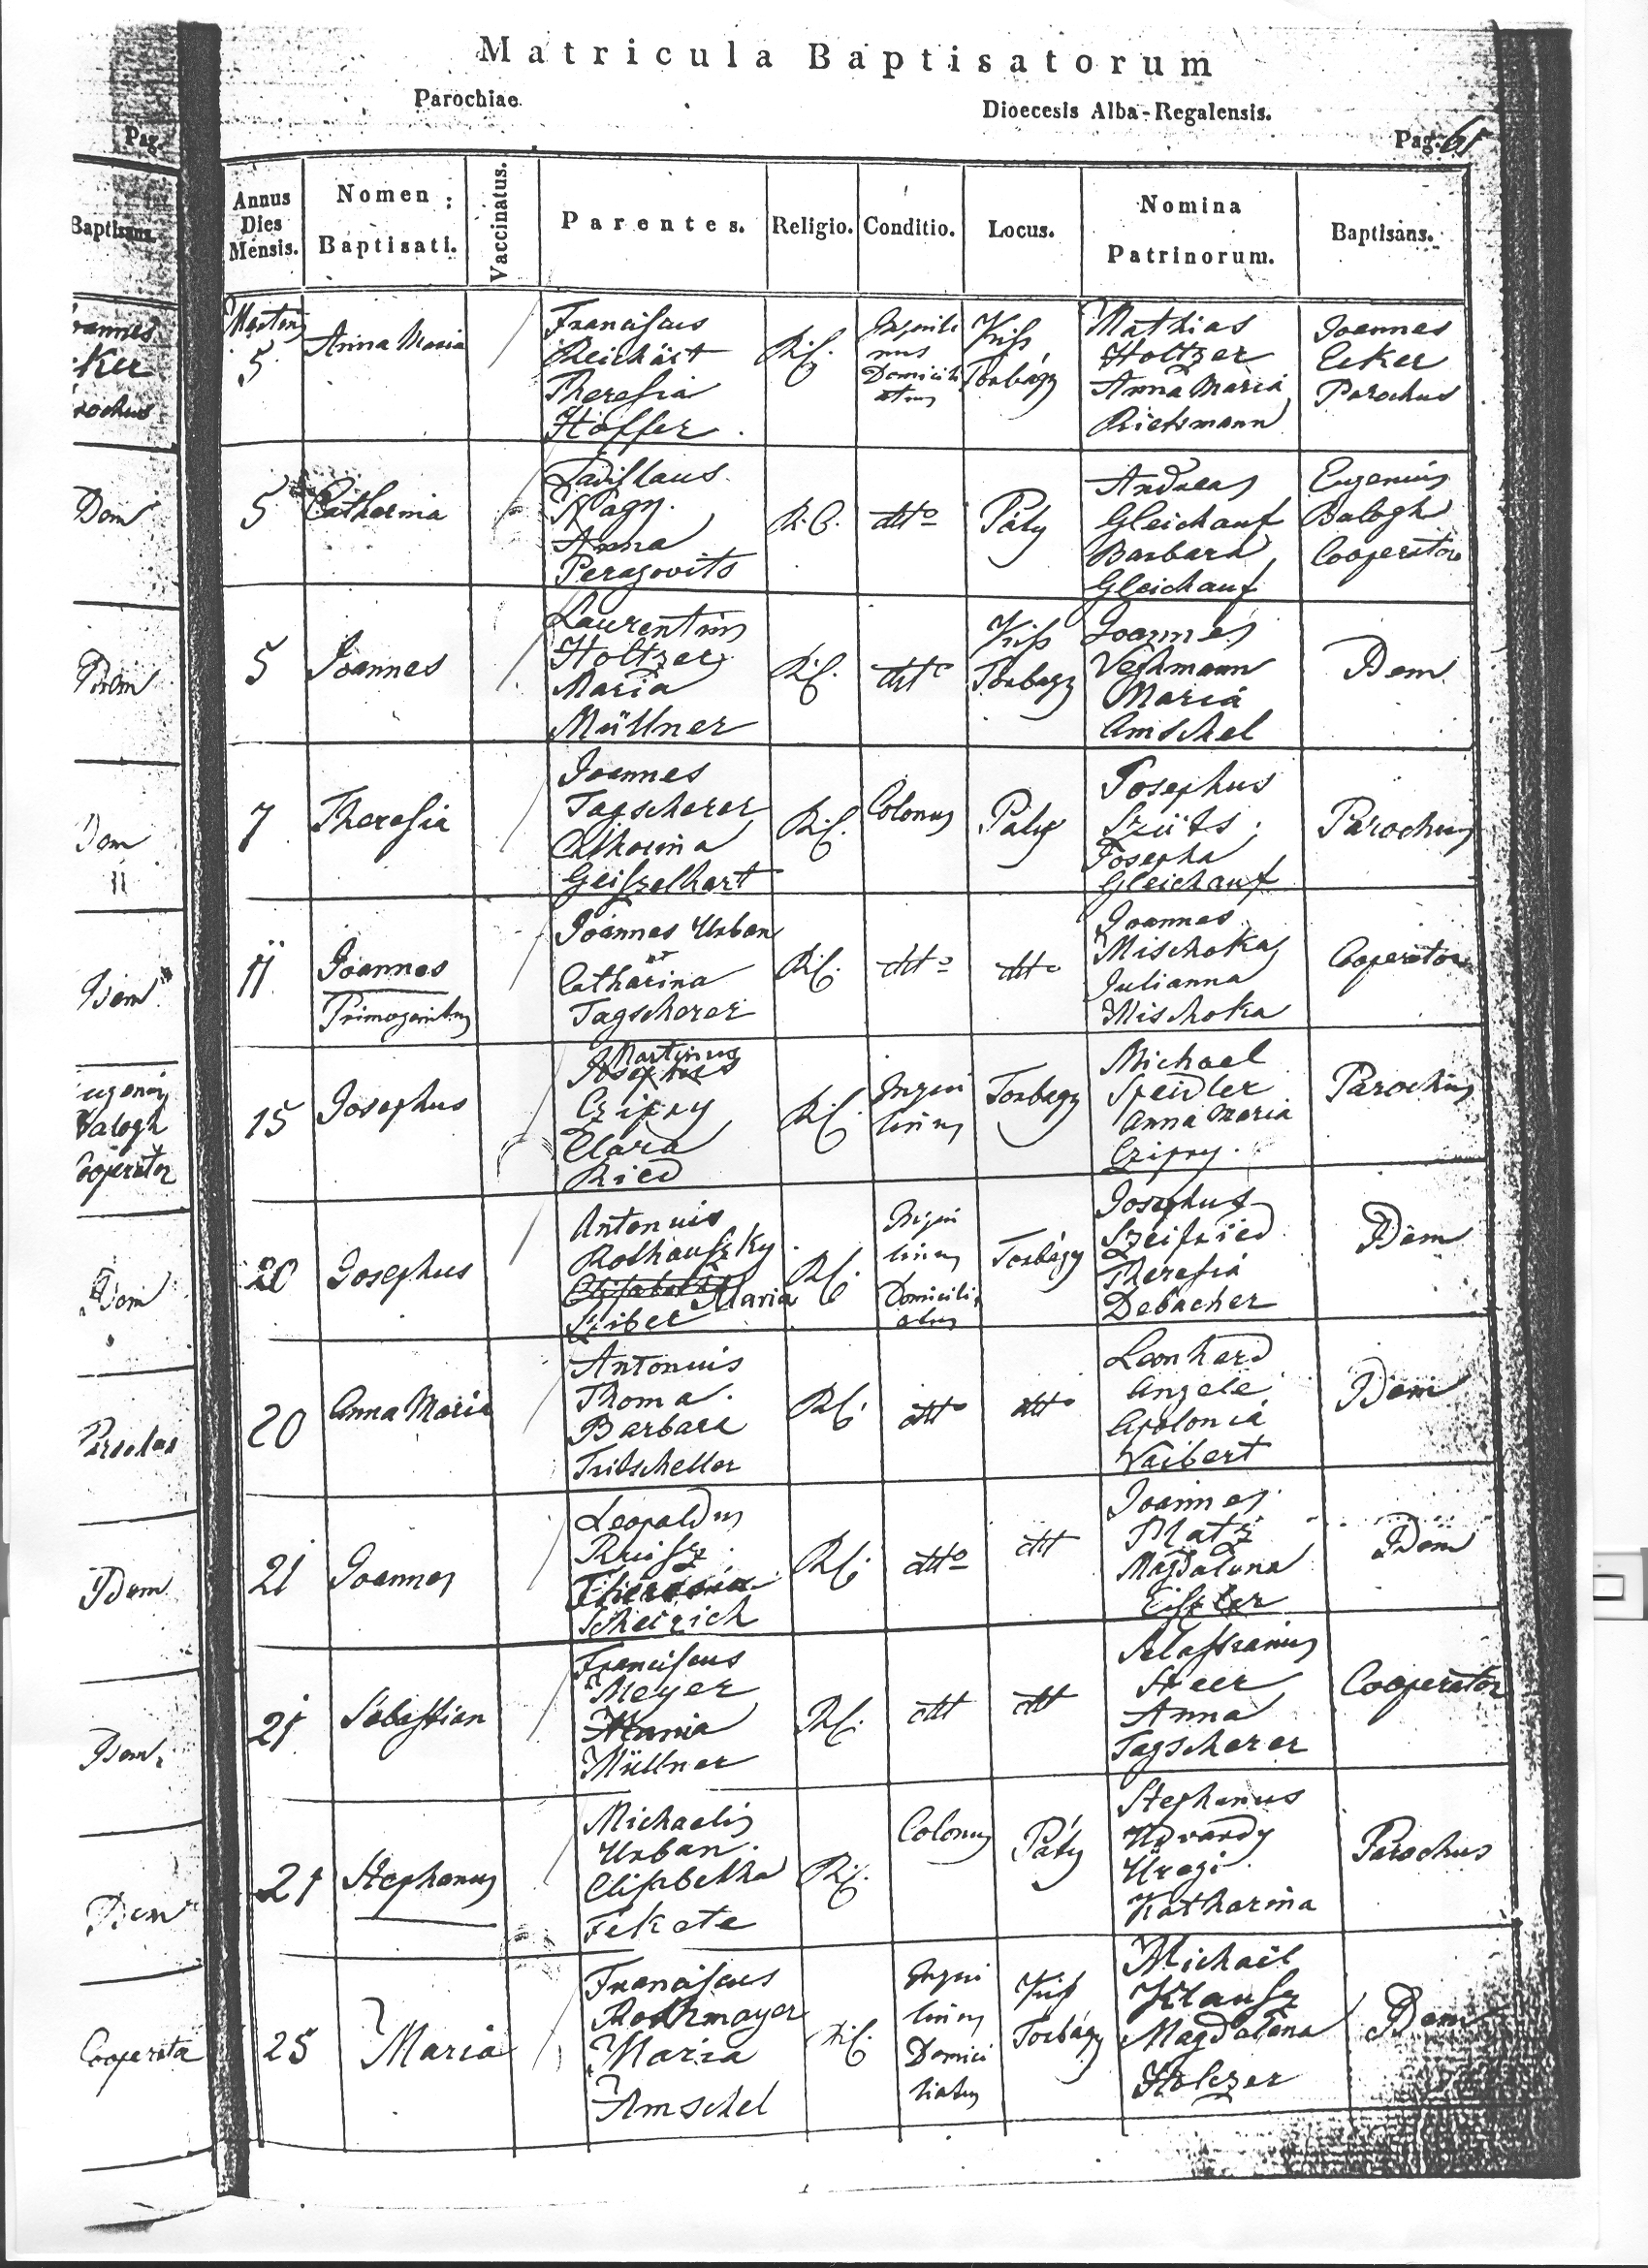 Matricula Baptisatorum
Parochiae.
Dioecesis Alba-Regalensis.
Pag.
Pag. 61
Baptisans.
Annus Dies Mensis.
Nomen Baptisati.
Vaccinatus.
Parentes.
Religio.
Conditio.
Locus.
Nomina Patrinorum.
Baptisans.
5
Anna Maria
Franciscus
Reichart
Theresia
Hoffer
R.C.
Inquili
nus
Domicili
atus
Kiss
Torbágy
Mathias
Holtzer
Anna Maria
Rietsmann
Joannes
Ecker
Parochus
5
Catharina
Ladislaus
Nagy
Anna
Peragovits
R.C.
dtto
Páty
Andreas
Gleichauf
Barbara
Gleichauf
Eugenius
Balogh
Cooperator
5
Joannes
Laurentius
Holtzer
Maria
Müllner
R.C.
dtto
Kiss
Torbágy
Joannes
Maria
Amschel
Idem
7
Theresia
Joannes
Tagscherer
Catharina
Geiszelhart
R.C.
Colonus
Páty
Josephus
Szüts
Josepha
Gleichauf
Parochus
11
Joannes
Primogenitus
Joannes Urban
et
Catharina
Tagscherer
R.C.
dtto
dtto
Joannes
Mischoka
Julianna
Mischoka
Cooperator
15
Josephus
Martinus
Josephus
Czipry
Clara
Ried
R.C.
Inqui
linus
Torbágy
Michael
Speidler
Anna Maria
Czipry
Parochus
20
Josephus
Antonius
Rothauszky
Elisabetha Maria
Szibet
R.C.
Inqui
linus
Domicili
atus
Torbágy
Josephus
Szeifried
Theresia
Debacher
Idem
20
Anna Maria
Antonius
Thoma
Barbara
Tritscheller
R.C.
dtto
dtto
Leonhard
Angele
Apolonia
Vaibert
Idem
21
Joannes
Leopoldus
Theresia
Scheirich
R.C.
dtto
dtt
Joannes
Platz
Magdalena
Idem
21
Sebastian
Franciscus
Meyer
Maria
Müllner
R.C.
dtt
dtt
Anna
Tagscherer
Cooperator
21
Stephanus
Michaelis
Urban
Elisabetha
Fekete
R.C.
Colonus
Páty
Stephanus
Udvardy
Üregi
Katharina
Parochus
25
Maria
Franciscus
Rothmayer
Maria
Amschel
R.C.
Inqui
linus
Domici
liatus
Kiss
Torbágy
Michael
Klausz
Magdalena
Holczer
Idem